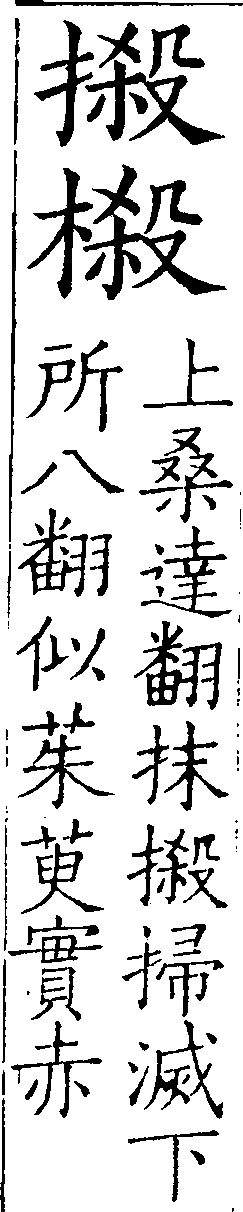 摋樧
上桑達翻抹摋掃滅下
所八翻似茱萸實赤